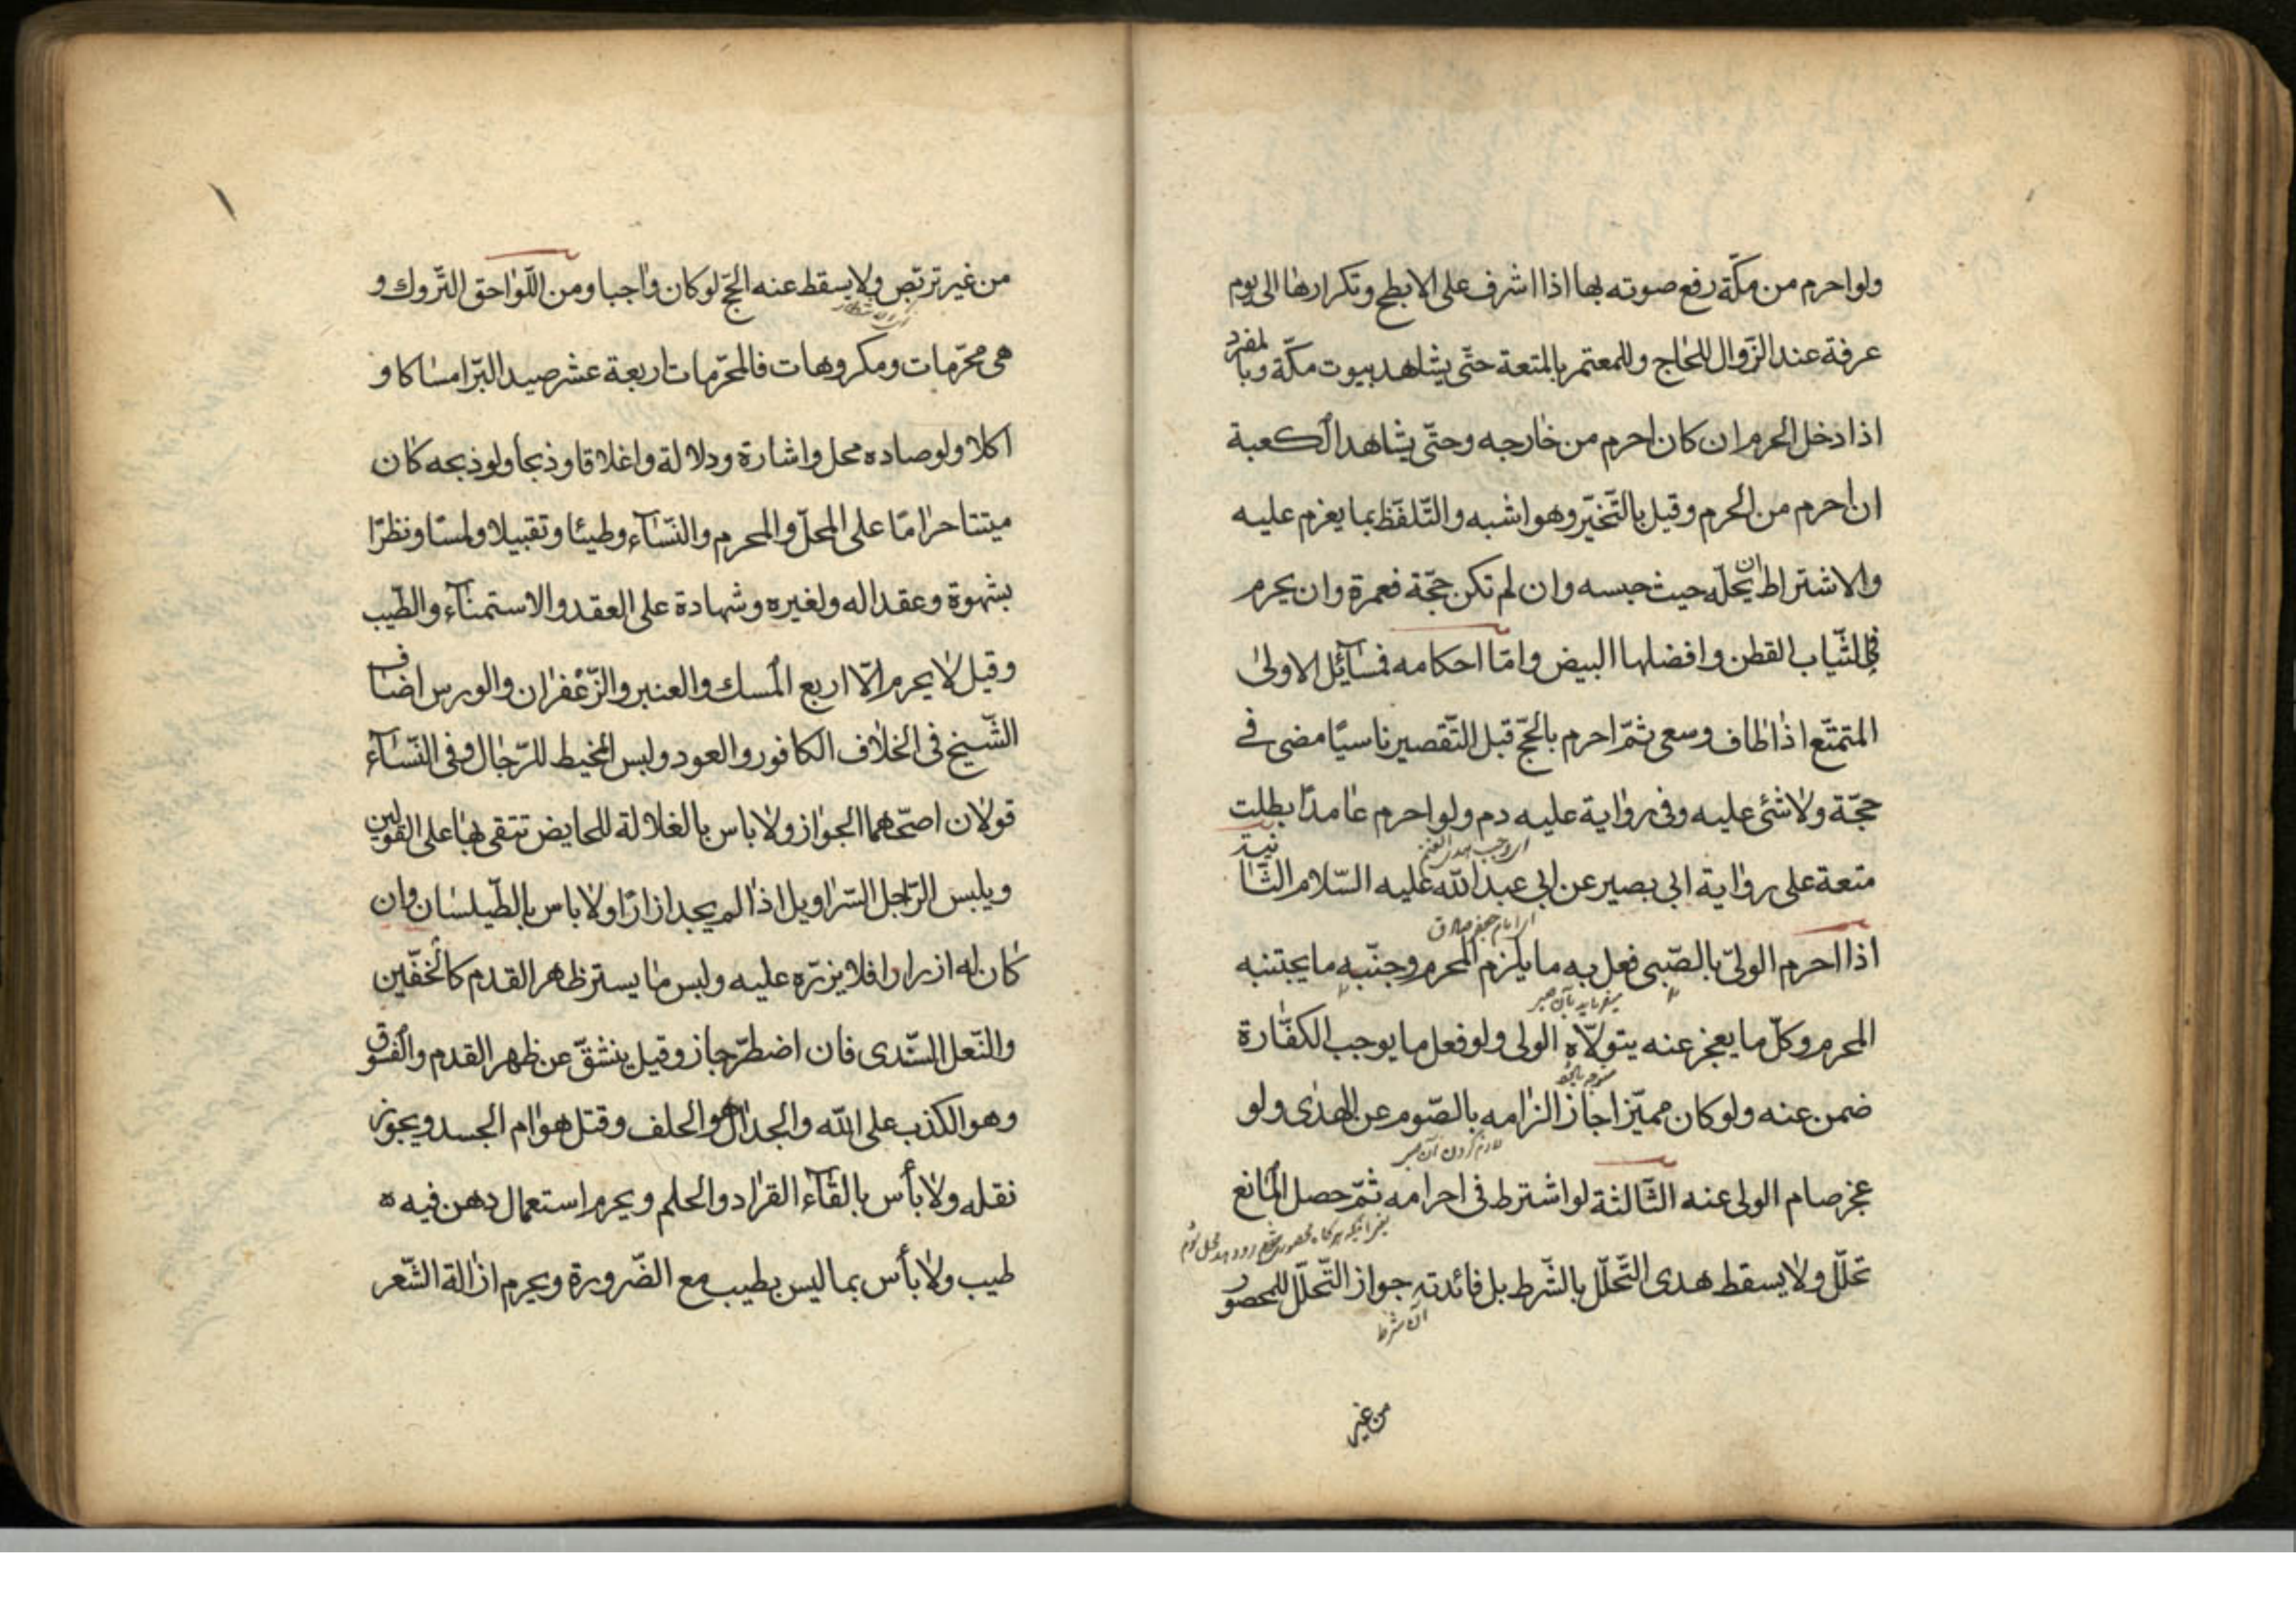 ولو احرم من مكّة رفع صوته بها اذا اشرف على الابطح وتكرارها الى يوم
عرفة عند الزّوال للحاج وللمعتمر بالمتعة حتّى يشاهد بيوت مكّة وبالمفرد
اذا دخل الحرم ان كان احرم من خارجه وحتّى يشاهد الكعبة
ان احرم من الحرم وقيل بالتّخيّر وهو اشبه والتّلفّظ بما يعزم عليه
والاشتراط ان يحلّه حيث حبسه وان لم تكن حجّة فعمرة وان يحرم
فى الثّياب القطن وافضلها البيض وامّا احكامه فمسآئل الاولى
المتمتّع اذا طاف وسعى ثمّ احرم بالحجّ قبل التّقصير ناسيًا مضى فى
حجّة ولا شئى عليه وفى رواية عليه دم ولو احرم عامدًا بطلت
متعة على رواية ابى بصير عن ابى عبد الله عليه السّلام الثّانية
اى امام جعفر صادق
اذا احرم الولىّ بالصّبى فعل به ما يلزم المحرم وجنّبه ما يجتنبه
المحرم وكلّ ما يعجز عنه يتولّاه الولى ولو فعل ما يوجب الكفّارة
ضمن عنه ولو كان مميّزا جاز الزامه بالصّوم عن الهدى ولو
لازم كردن آن
عجز صام الولى عنه الثّالثة لو اشترط فى احرامه ثمّ حصل المانع
تحلّل ولا يسقط هدى التّحلّل بالشّرط بل فائدته جواز التّحلّل للمحصور
آن شرط
من غير
من غير تربّص ولا يسقط عنه الحجّ لو كان واجبا ومن اللّواحق التّروك و
هى محرّمات ومكروهات فالمحرّمات اربعة عشر صيد البرّ امساكا و
اكلا ولو صاده محل واشارة ودلالة واغلاقا وذبحا ولو ذبحه كان
ميتتا حرامّا على المحلّ والمحرم والنّسآء وطيئا وتقبيلا ولمسّا ونظرّا
بشهوة وعقدا له ولغيره وشهادة على العقد والاستمنآء والطّيب
وقيل لا يحرم الّا اربع المسك والعنبر والزّعفران والورس اضاف
الشّيخ فى الخلاف الكافور والعود ولبس المخيط للرّجال وفى النّسآء
قولان اصحّهما الجواز ولا باس بالغلالة للحايض تتقى بها على القولين
ويلبس الرّجل السّراويل اذا لم يجد ازارًا ولا باس بالطّيلسان وان
كان له ازرار افلا يزرّه عليه ولبس ما يستر ظاهر القدم كالخفّين
والنّعل السّندى فان اضطرّ جاز وقيل ينشقّ عن ظهر القدم والفسوق
وهو الكذب على الله والجدال هو الحلف وقتل هوام الجسد ويجوز
نقله ولا بأس بالقآء القراد والحلم ويحرم استعمال دهن فيه ه
طيب ولا بأس بما ليس بطيب مع الضّرورة ويحرم ازالة الشّعر